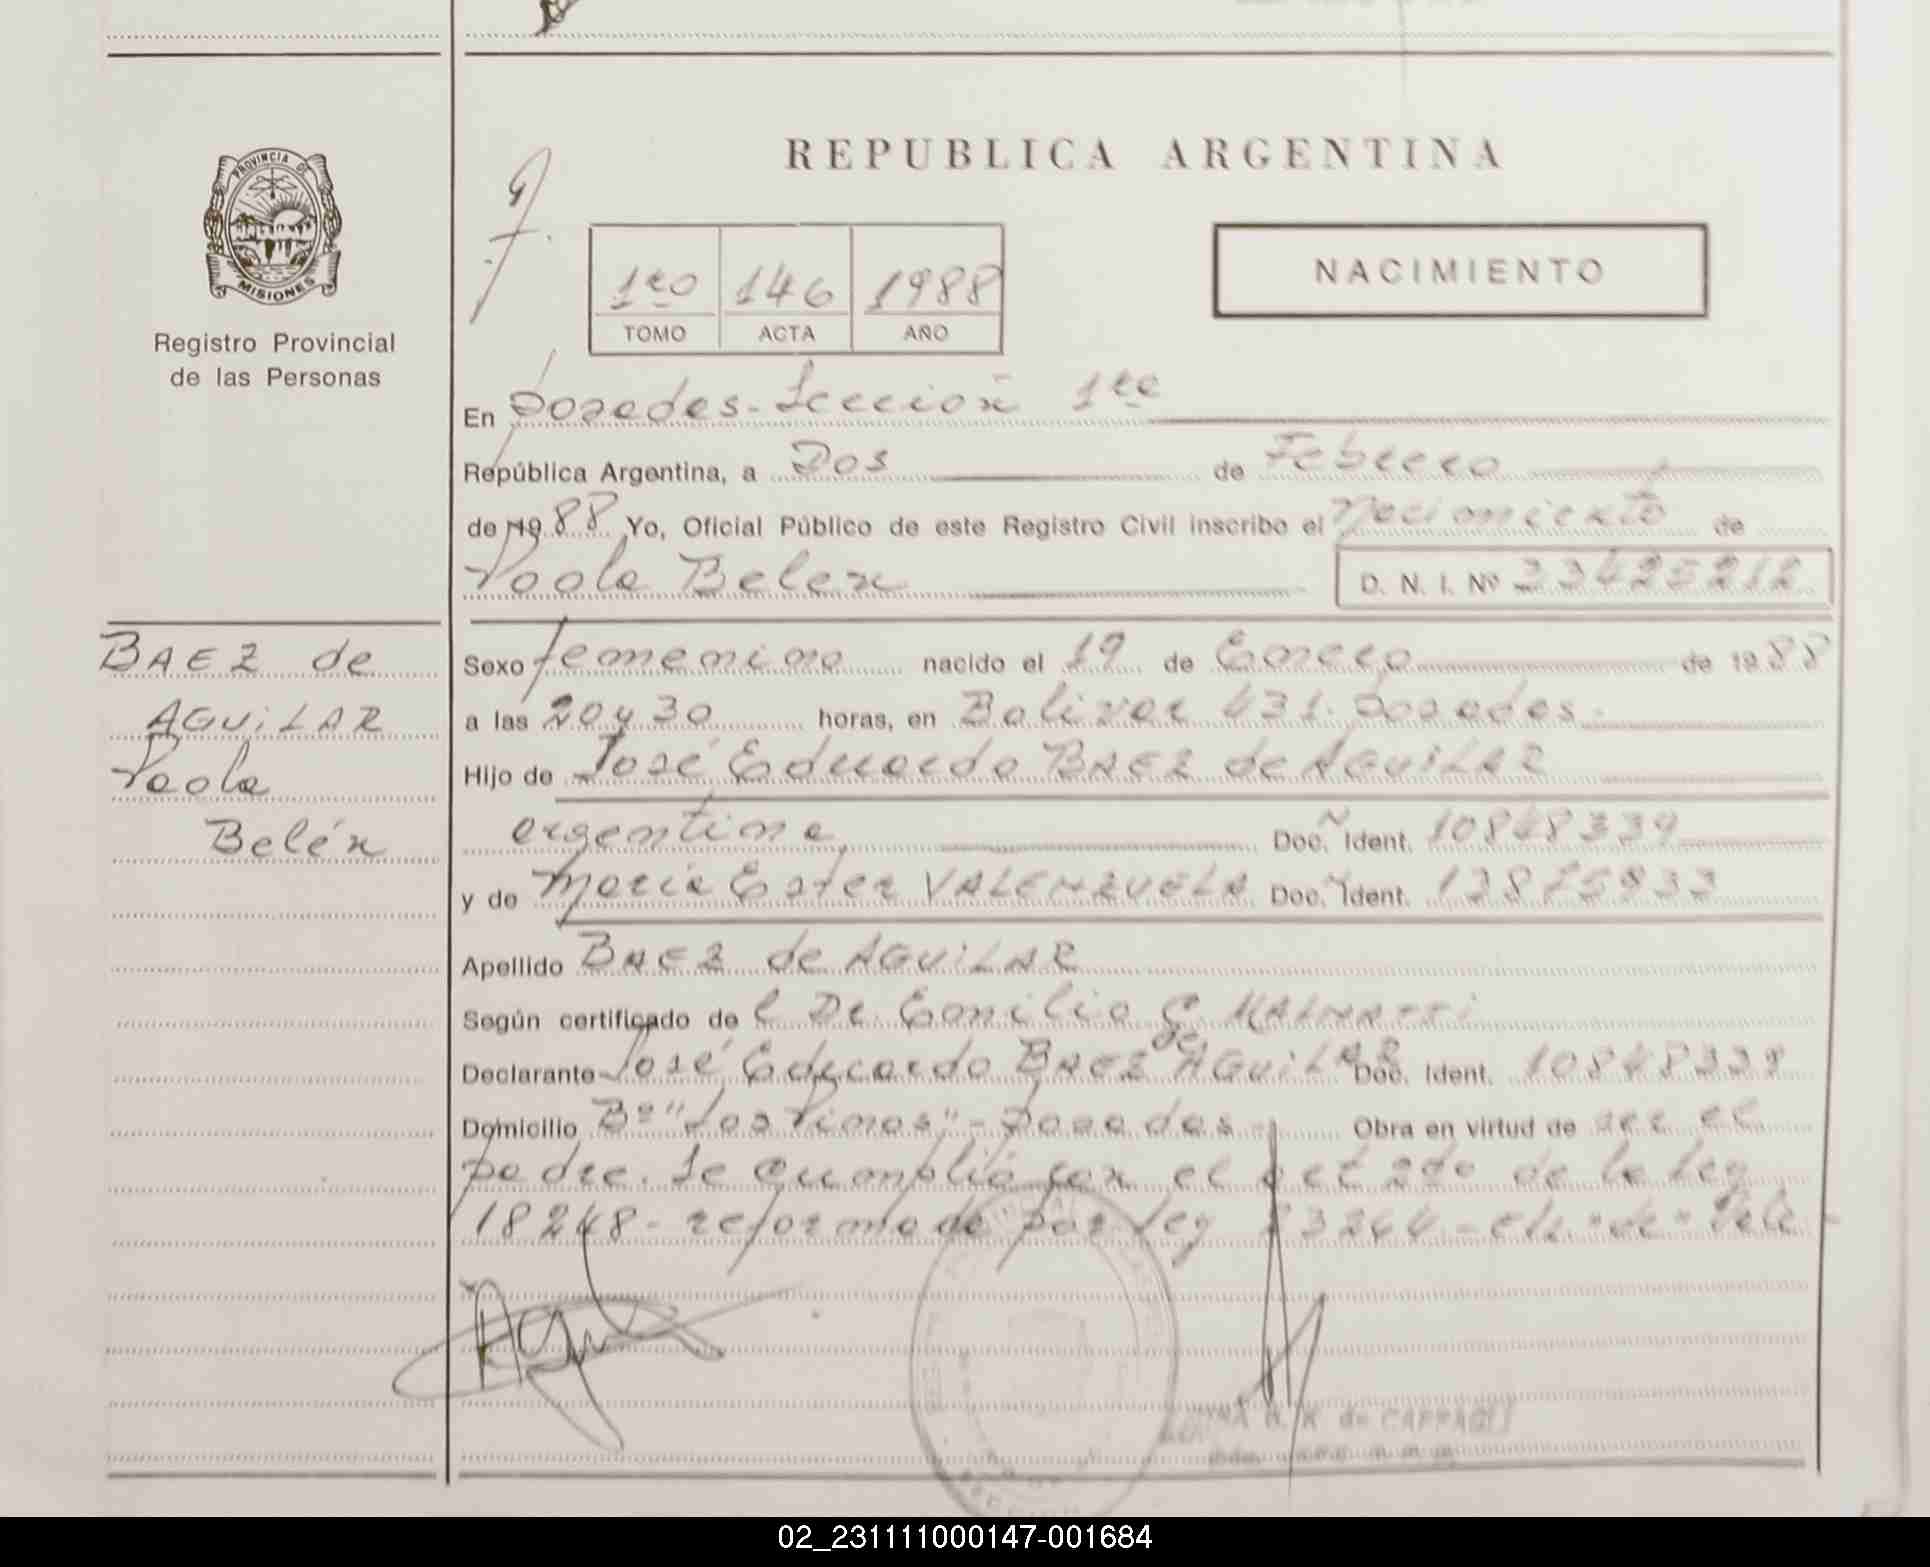 REPUBLICA ARGENTINA
PROVINCIA DE
MISIONES
Registro Provincial
de las Personas
1ro 146 1988
TOMO ACTA AÑO
NACIMIENTO
En Posadas - Sección 1ra
República Argentina, a Dos de Febrero
de 1988 Yo, Oficial Público de este Registro Civil inscribo el Nacimiento de
Paola Belen D. N. I. Nº 33425212
BAEZ de
AGUiLAR
Paola
Belén
Sexo femenino nacido el 19 de Enero de 1988
a las 20 y 30 horas, en Bolivar 431. Posadas.
Hijo de José Eduardo BAEZ de AGUiLAR
argentina Doc. Ident. 10848339
y de María Ester VALENZUELA Doc. Ident.
Apellido BAEZ de AGUiLAR
Según certificado de l Dr. Emilio G. MALNATTi
Declarante José Eduardo BAEZ de AGUiLAR Doc. Ident. 10848339
Domicilio Bº "Los Pinos" - Posadas - Obra en virtud de ser el
padre. Se cumplió con el art 2do de la Ley
18248 - reformada por Ley 23264 -
02_231111000147-001684